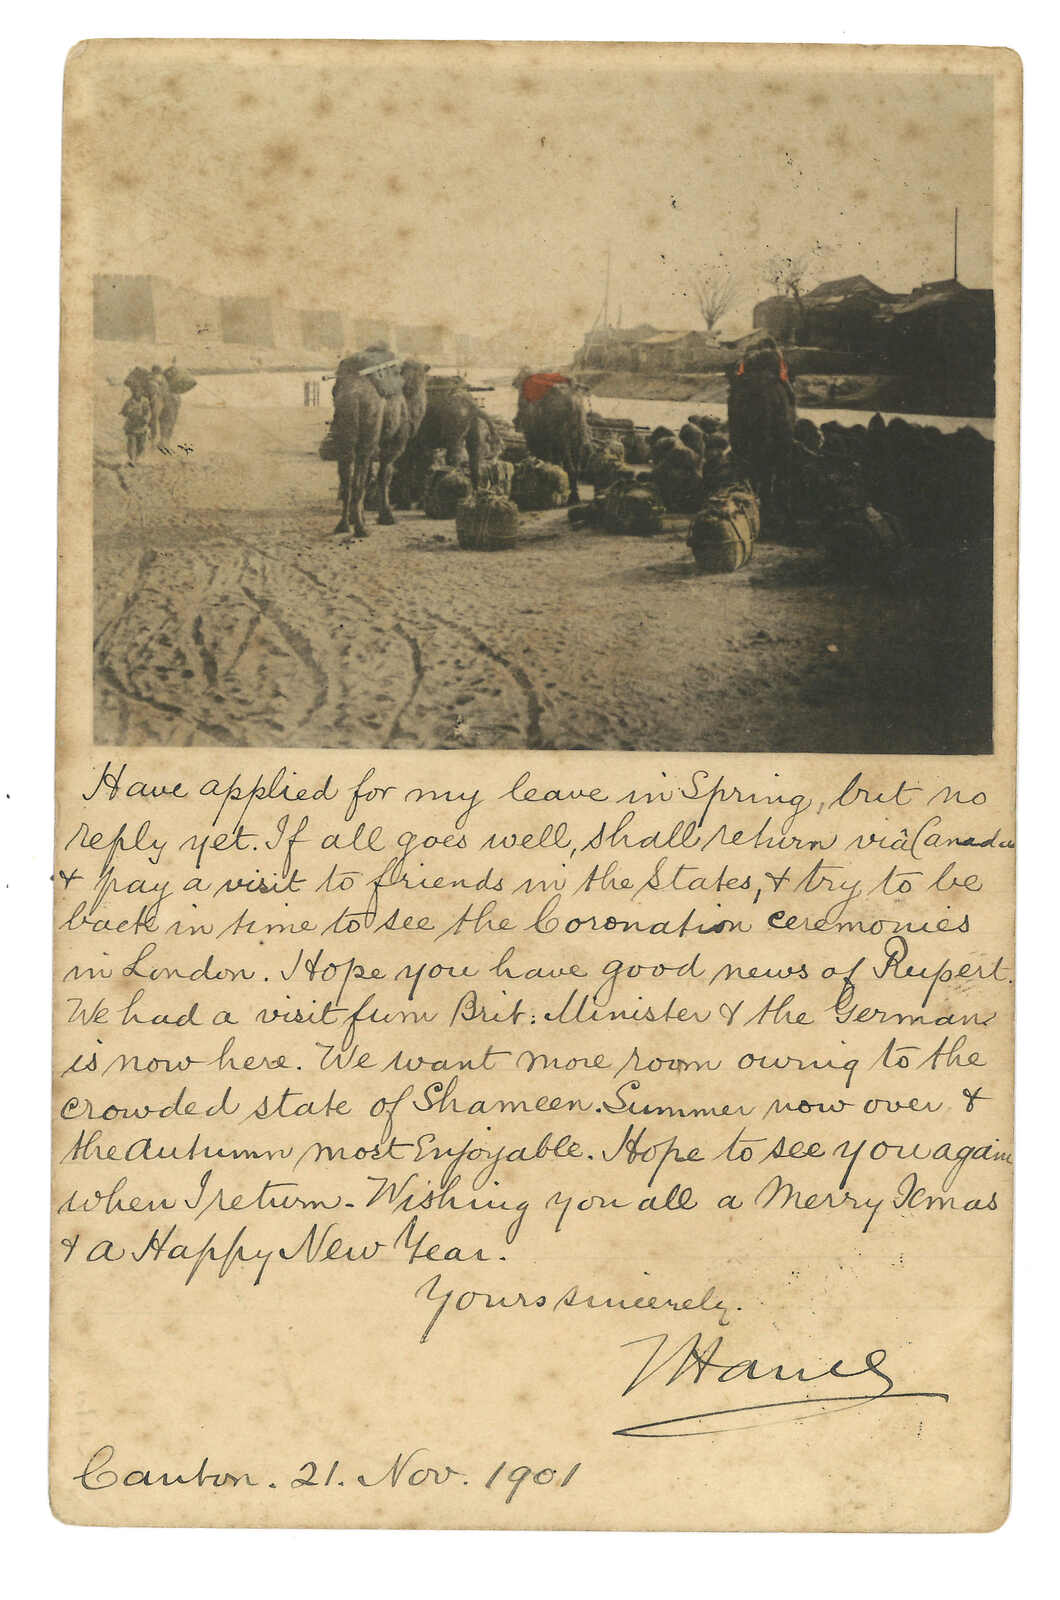 Have applied for my leave in Spring, but no
reply yet. If all goes well, shall return viâ Canada
& pay a visit to friends in the States, & try to be
back in time to see the Coronation ceremonies
in London. Hope you have good news of Rupert.
We had a visit from Brit: Minister & the German
is now here. We want more room owing to the
crowded state of Shameen. Summer now over &
the Autumn most Enjoyable. Hope to see you again
when I return - Wishing you all a Merry Xmas
& a Happy New Year.
Yours sincerely.
Canton. 21. Nov. 1901